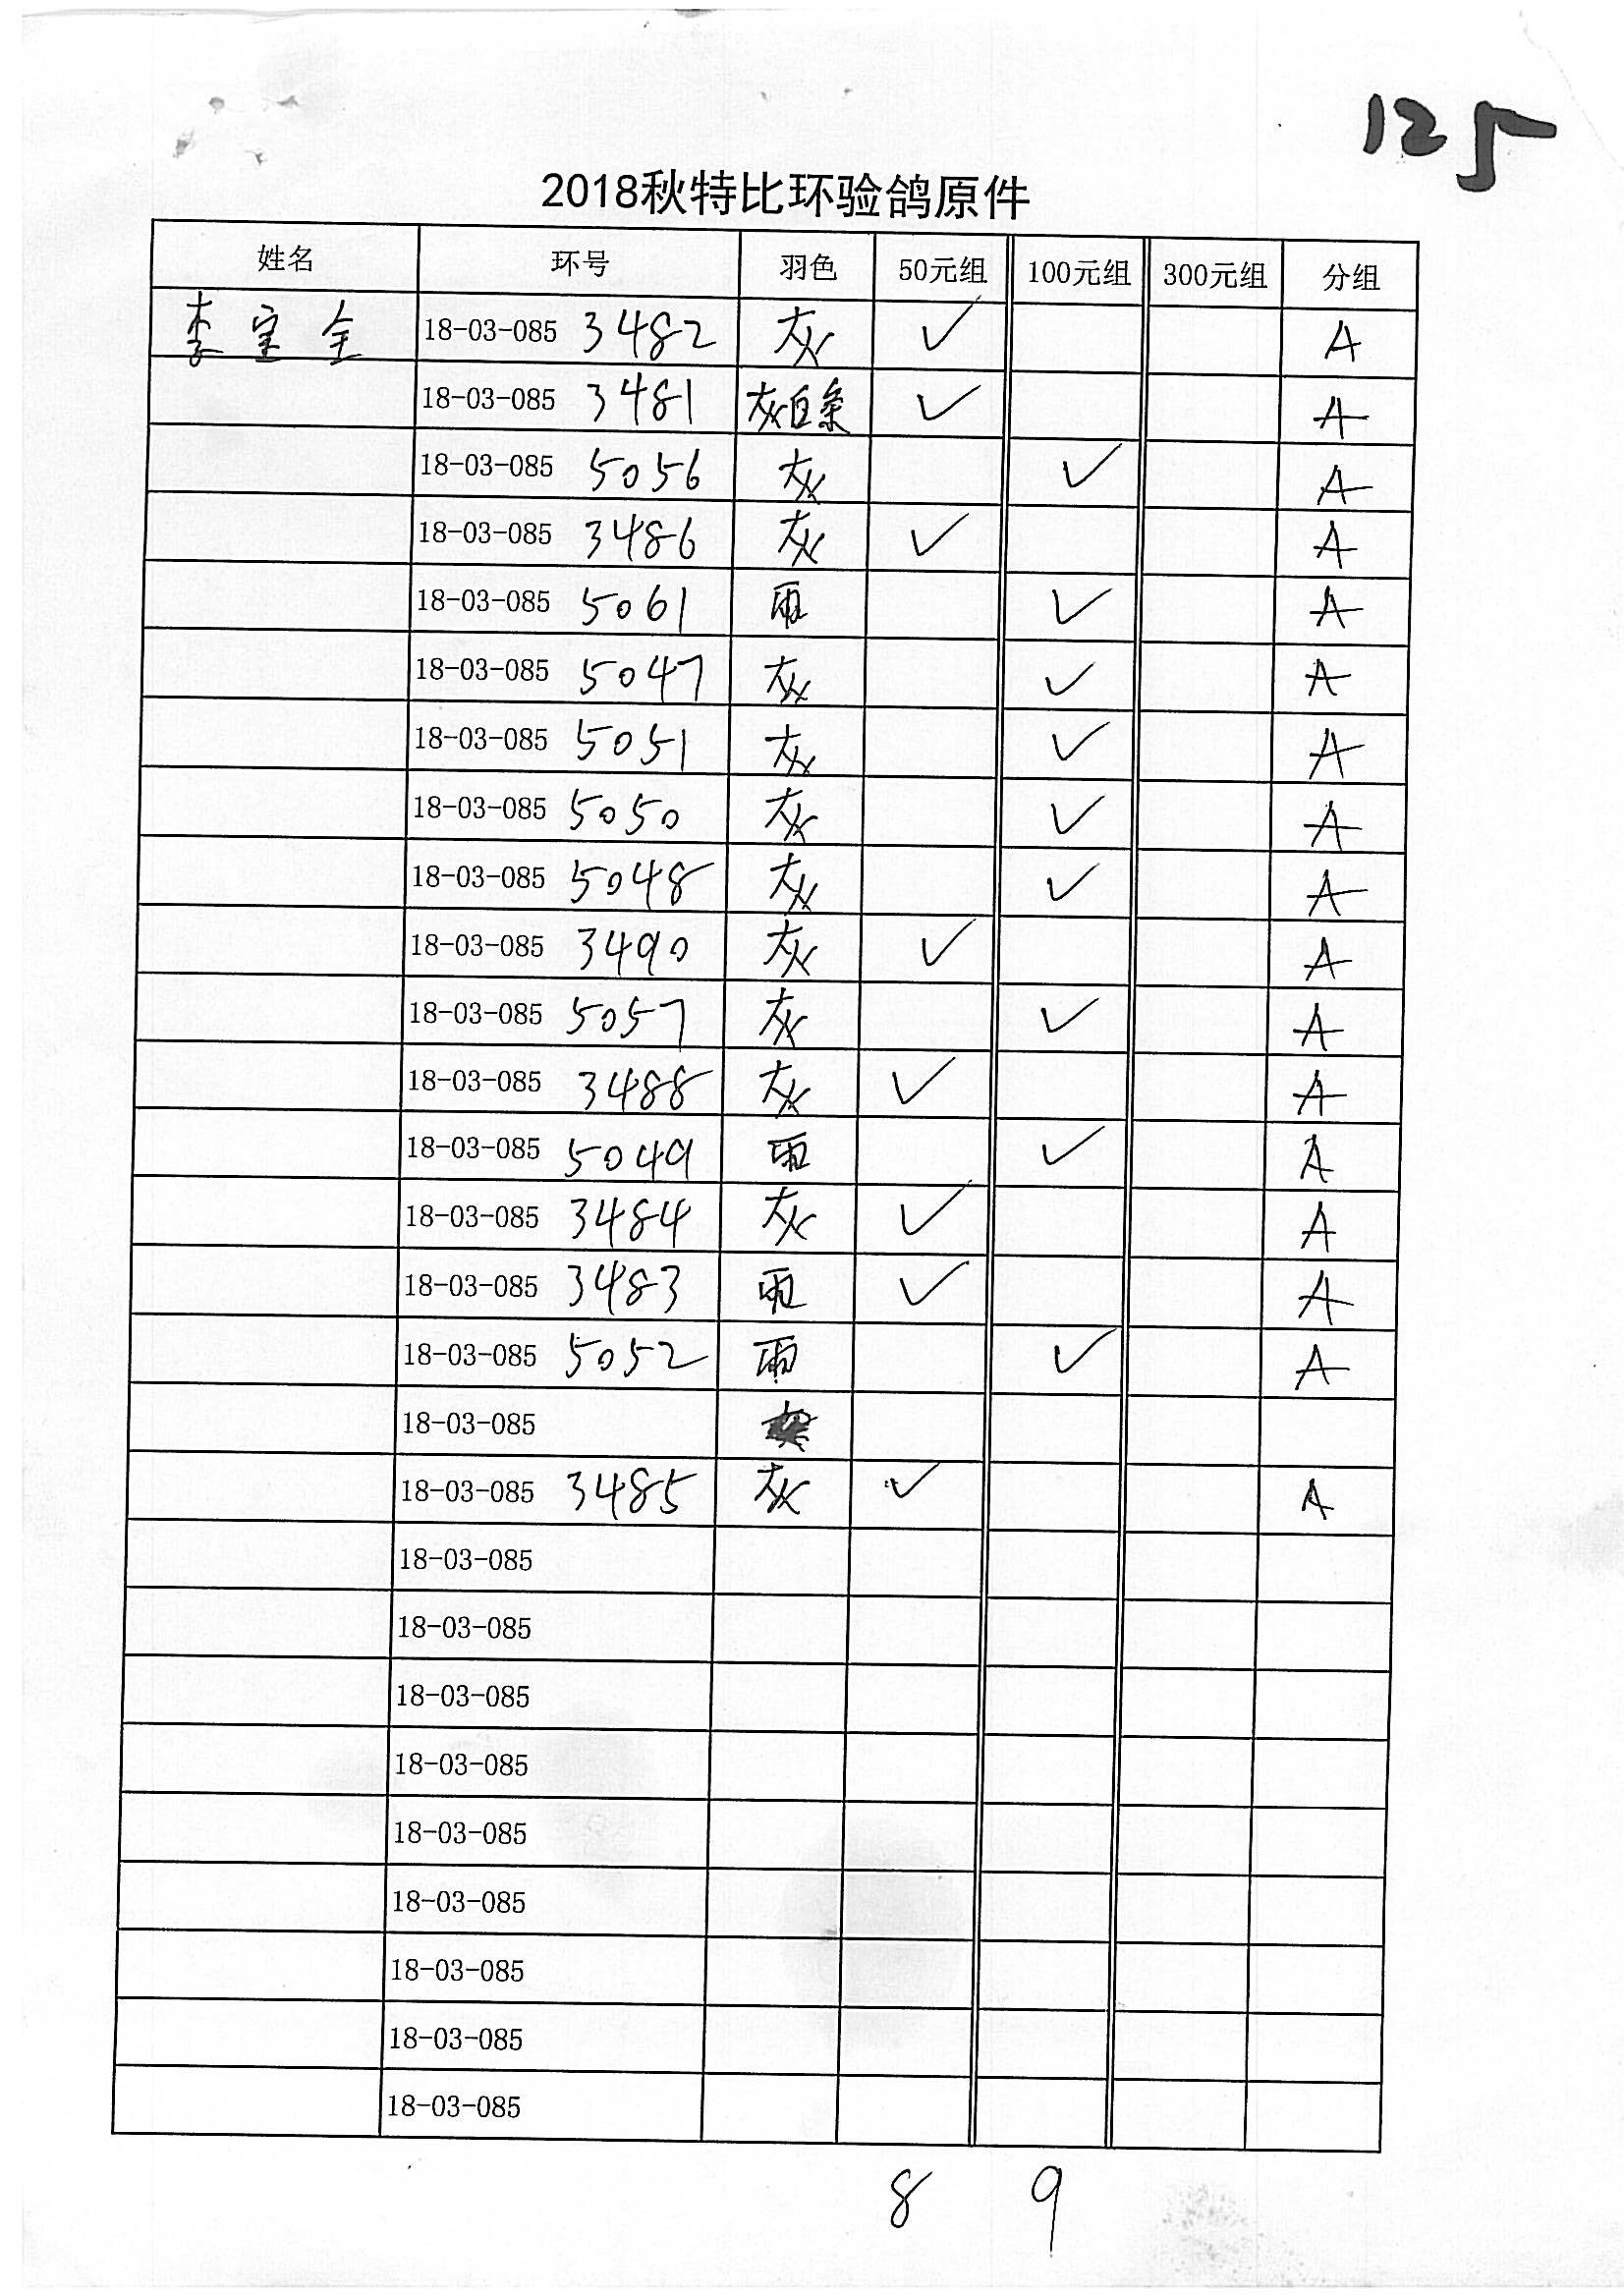 125
2018秋特比环验鸽原件
姓名 环号 羽色 50元组 100元组 300元组 分组
李宝全 18-03-085 3482 灰 ✓ A
18-03-085 3481 灰白条 ✓ A
18-03-085 5056 灰 ✓ A
18-03-085 3486 灰 ✓ A
18-03-085 5061 雨 ✓ A
18-03-085 5047 灰 ✓ A
18-03-085 5051 灰 ✓ A
18-03-085 5050 灰 ✓ A
18-03-085 5048 灰 ✓ A
18-03-085 3490 灰 ✓ A
18-03-085 5057 灰 ✓ A
18-03-085 3488 灰 ✓ A
18-03-085 5049 雨 ✓ A
18-03-085 3484 灰 ✓ A
18-03-085 3483 雨 ✓ A
18-03-085 5052 雨 ✓ A
18-03-085
18-03-085 3485 灰 ✓ A
18-03-085
18-03-085
18-03-085
18-03-085
18-03-085
18-03-085
18-03-085
18-03-085
18-03-085
8 9